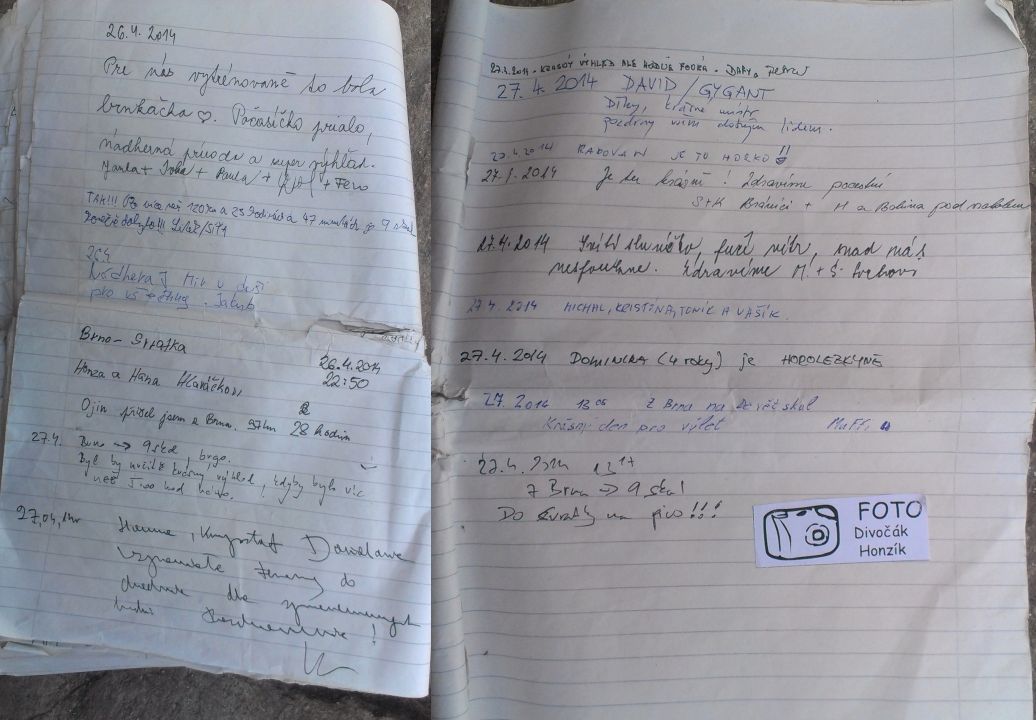 26.4.2014
Pre nás vytrénované to bola
brnkačka ♡. Počasíčko prialo,
nádherná príroda a super výhľad.
Janka + Ivka + Paula + + Fero
TAK!!! Po více než 120 km a 23 hodinách a 47 minutách je 9 skal
konečně dobyto!!!
26.4
Nádhera Mír v duši
pro všechny. Jakub
Brno - Svratka
26.4.2014
Honza a Hana Hlaváčkovi 22:50
Ojin přišel jsem z Brna. 97km 23 hodin
27.4. Brno → 9 skal, brgo.
Byl by určitě krásný výhled, kdyby bylo víc
než 5:00 hod ráno.
27,04,14r
Hanna, Krzysztof
27.4.2014. KRÁSNÝ VÝHLED ALE HODNĚ FOUKÁ.
27.4.2014 DAVID/GYGANT
Díky, krásné místo
pozdravy všem dobrým lidem.
27.4.2014 RADOVAN JE TU HORKO!!
27.4.2014 Je tu krásně! Zdravíme pocestné
S+K Bránici + M a Bobina pod
27.4.2014 Svítí sluníčko, fučí vítr, snad nás
nesfoukne. Zdravíme M. + Š.
27.4.2014 MICHAL, KRISTÍNA, TONÍK A VAŠÍK.
27.4.2014 DOMINIKA (4 roky) je HOROLEZKYNĚ
27. 2014 13 05 Z Brna na Devět skal
Krásný den pro výlet
27.4. 2014 13 17
Z Brna → 9 skal
Do Svratky na pivo!!!
FOTO
Divočák
Honzík